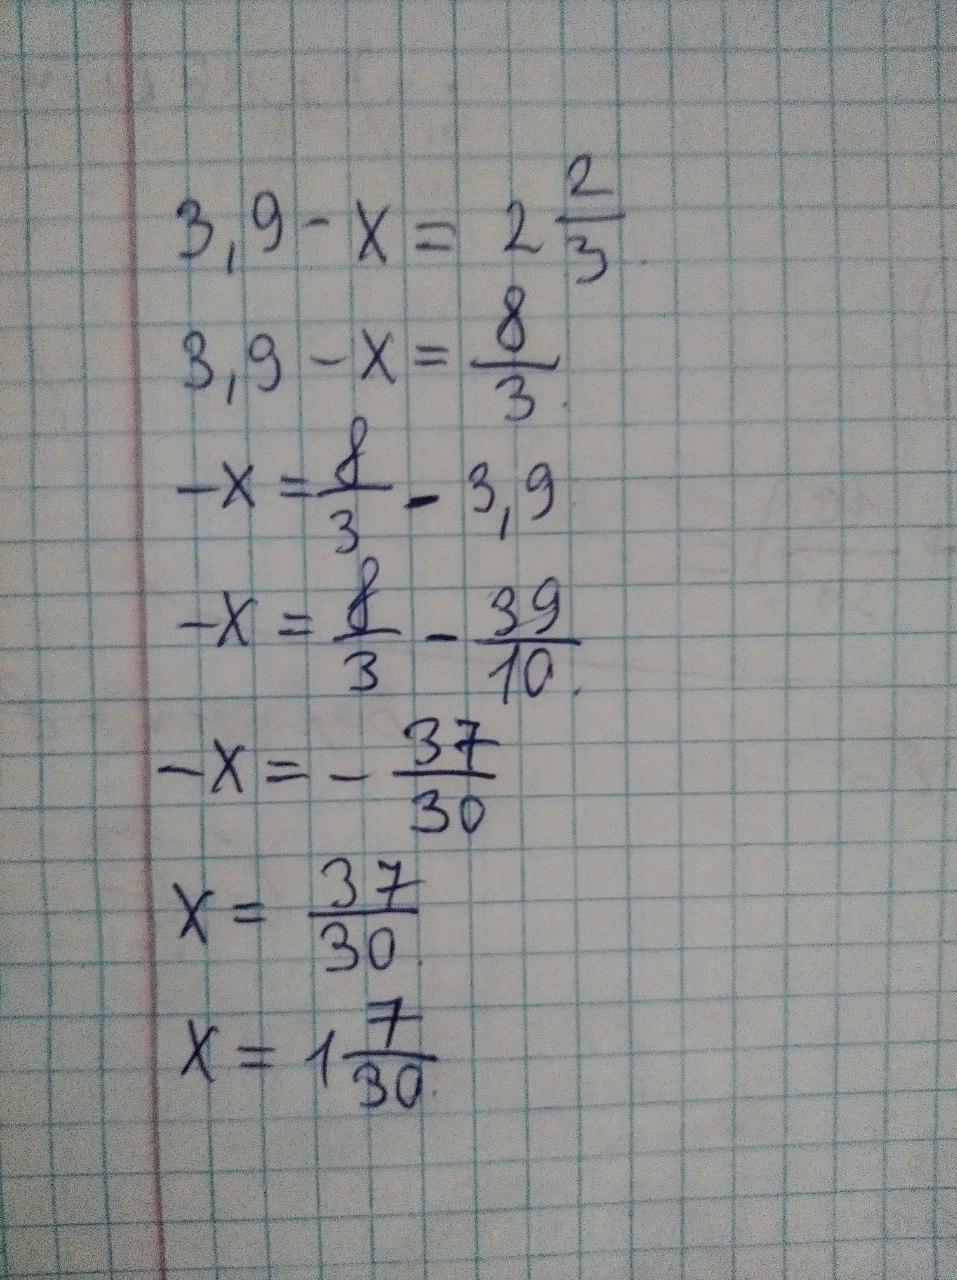 3,9 - x = 2 2/3
3,9 - x = 8/3
-x = 8/3 - 3,9
-x = 8/3 - 39/10
-x = - 37/30
x = 37/30
x = 1 7/30